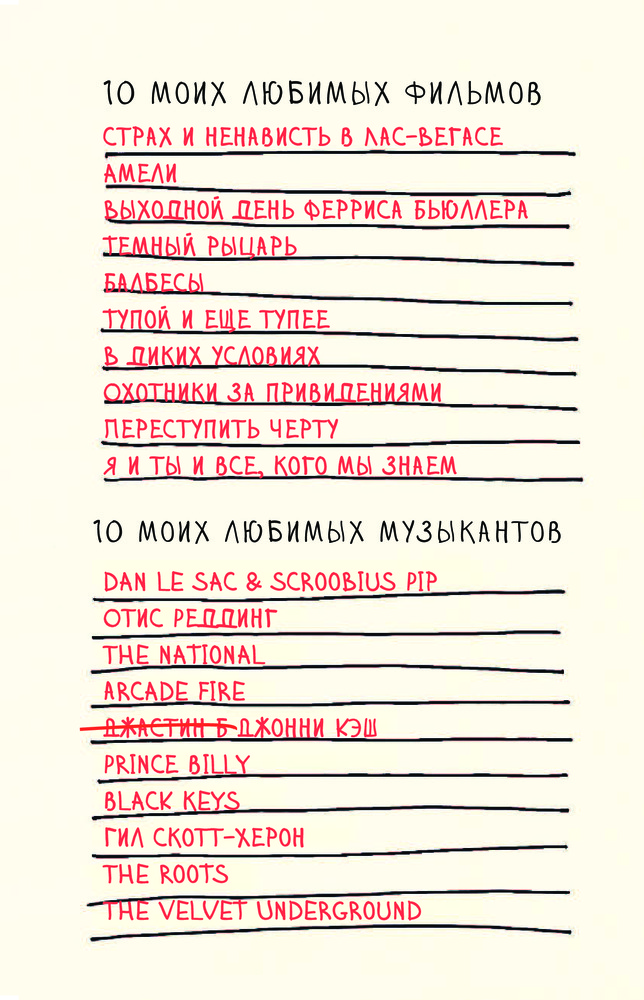 10 МОИХ ЛЮБИМЫХ ФИЛЬМОВ
СТРАХ И НЕНАВИСТЬ В ЛАС-ВЕГАСЕ
АМЕЛИ
ВЫХОДНОЙ ДЕНЬ ФЕРРИСА БЬЮЛЛЕРА
ТЕМНЫЙ РЫЦАРЬ
БАЛБЕСЫ
ТУПОЙ И ЕЩЕ ТУПЕЕ
В ДИКИХ УСЛОВИЯХ
ОХОТНИКИ ЗА ПРИВИДЕНИЯМИ
ПЕРЕСТУПИТЬ ЧЕРТУ
Я И ТЫ И ВСЕ, КОГО МЫ ЗНАЕМ
10 МОИХ ЛЮБИМЫХ МУЗЫКАНТОВ
DAN LE SAC & SCROOBIUS PIP
ОТИС РЕДДИНГ
THE NATIONAL
ARCADE FIRE
ДЖАСТИН Б ДЖОННИ КЭШ
PRINCE BILLY
BLACK KEYS
ГИЛ СКОТТ-ХЕРОН
THE ROOTS
THE VELVET UNDERGROUND